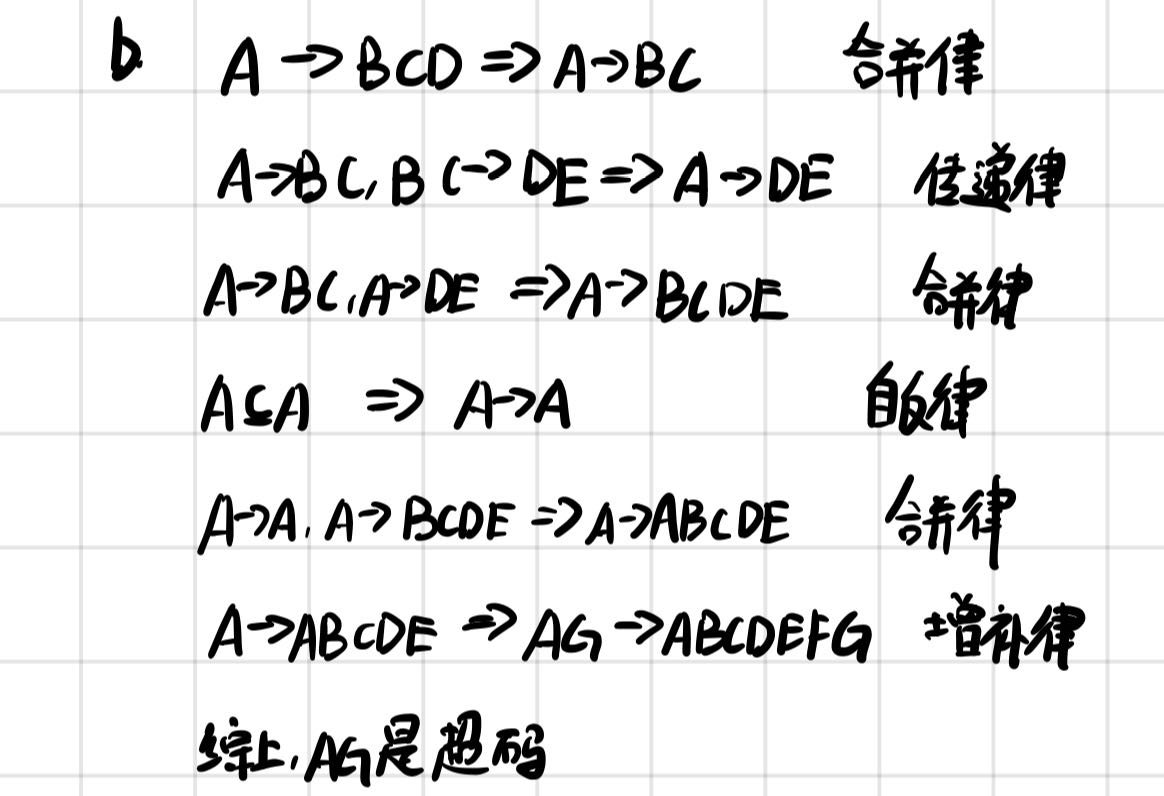 b. A→BCD⇒A→BC 合并律
A→BC,BC→DE⇒A→DE 传递律
A→BC,A→DE⇒A→BCDE 合并律
A⊆A ⇒ A→A 自反律
A→A,A→BCDE⇒A→ABCDE 合并律
A→ABCDE⇒AG→ABCDEFG 增补律
综上,AG是超码